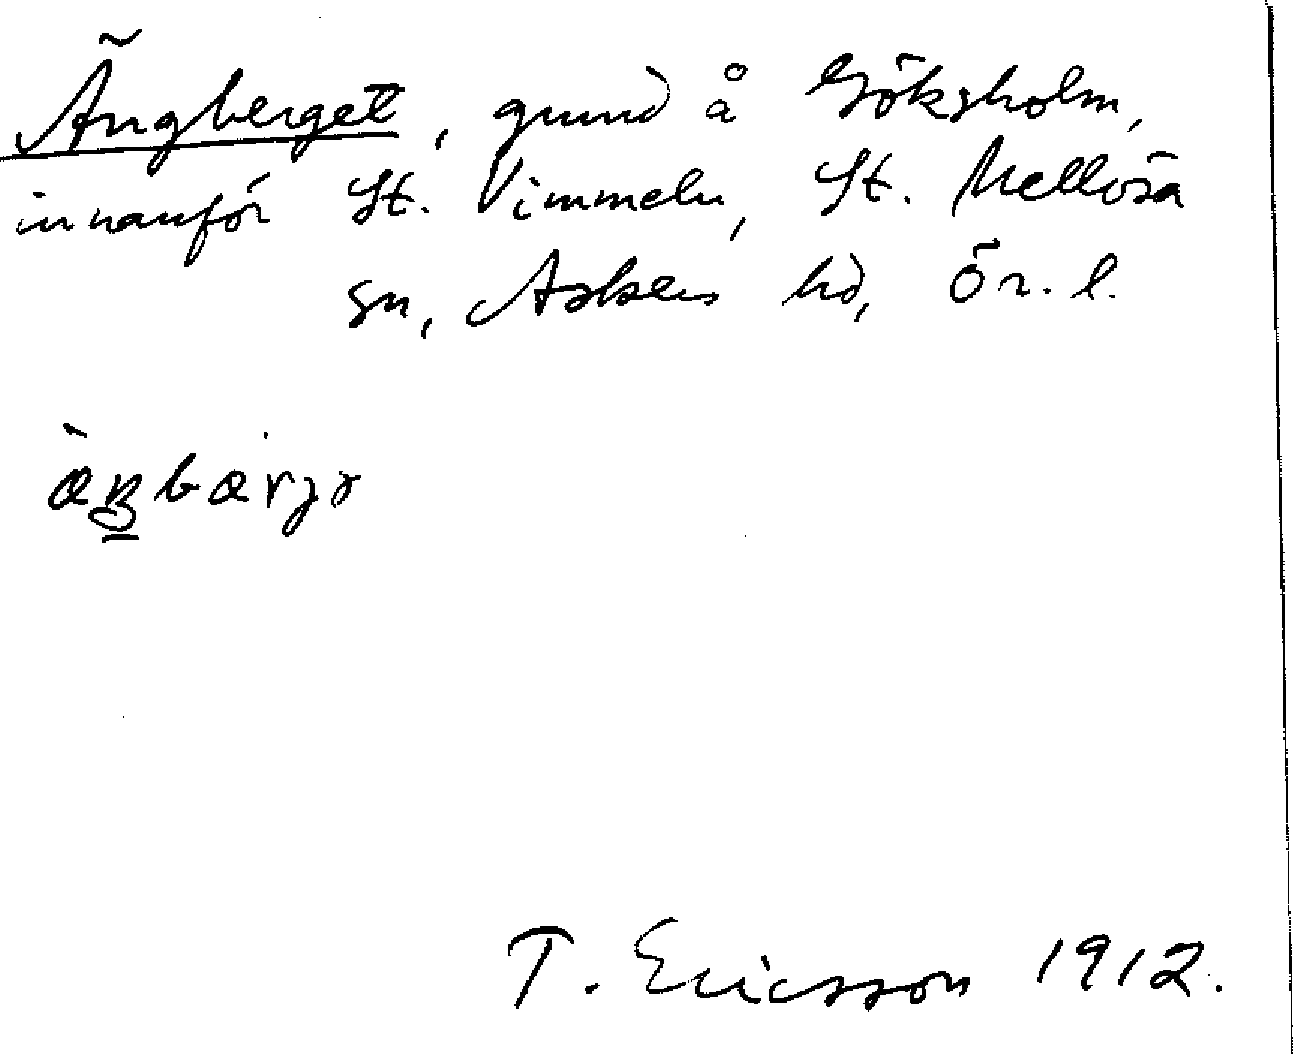 Ängberget, grund å Göksholm,
innanför St. Vimmeln, St. Mellösa
sn, Askers hd, Ör. l.
T. Ericsson 1912.